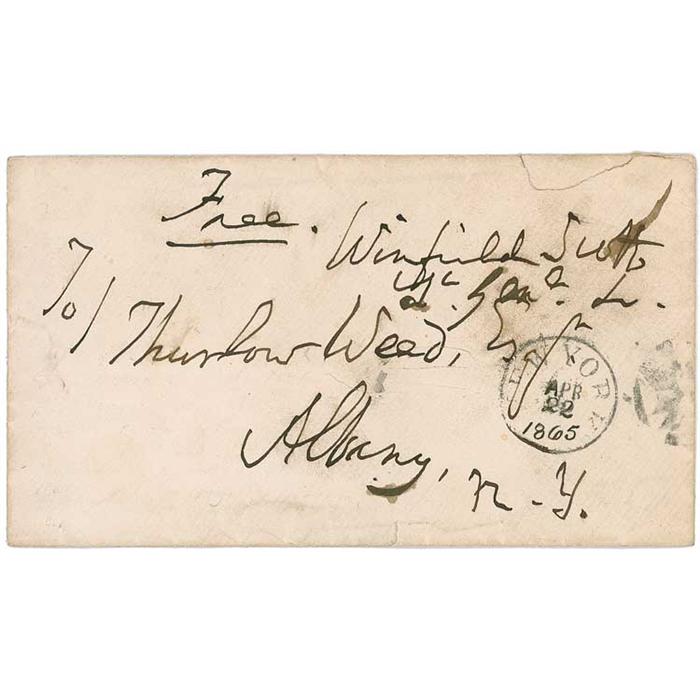 Free.
Winfield Scott,
To/
Thurlow Weed, Esqr
Albany,
N.Y.
NEW YORK
APR
22
1865